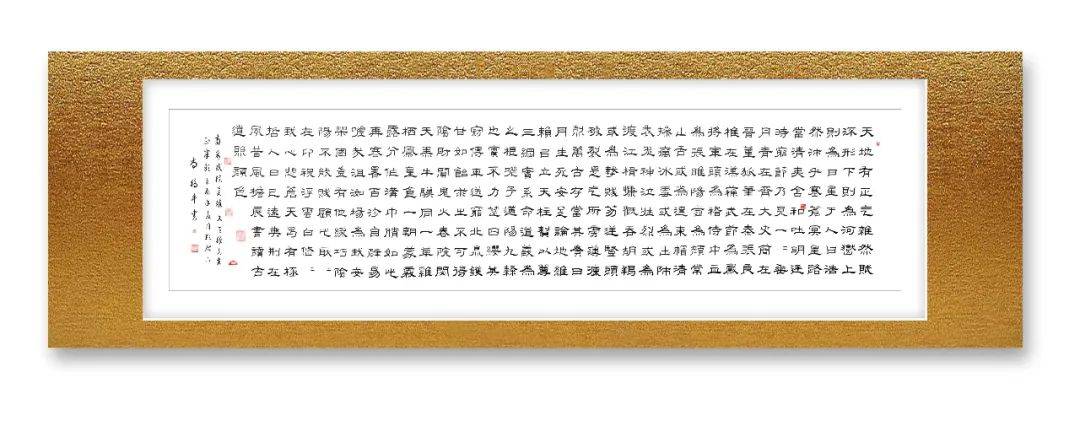 天地有正气雜然賦
流形下則為河嶽上
則為日星于人曰浩
然沛乎塞蒼冥皇路
當清夷含和吐明廷
時窮節乃見一一垂
丹青在齊太史簡在
晉董狐筆在秦張良
椎在漢蘇武節為嚴
將軍頭為嵇侍中血
為張睢陽齒為顏常
山舌或為遼東帽清
操厲冰雪或為出師
表鬼神泣壯烈或為
渡江楫慷慨吞胡羯
或為擊賊笏逆豎頭
破裂是气所磅礴凜
烈萬古存當其貫日
月生死安足論地維
賴以立天柱賴以尊
三綱實系命道義為
之根嗟予遘陽九隸
也實不力楚囚纓其
冠傳車送窮北鼎鑊
甘如飴求之不可得
陰房闃鬼火春院閟
天黑牛驥同一皂雞
棲鳳凰食一朝蒙霧
露分作溝中瘠如此
再寒暑百沴自辟易
嗟哉沮洳場為我安
樂國豈有他繆巧陰
陽不能賊顧此耿耿
在仰視浮雲白悠悠
我心悲蒼天曷有極
哲人日已遠典刑在
夙昔風檐展書讀古
道照顏色